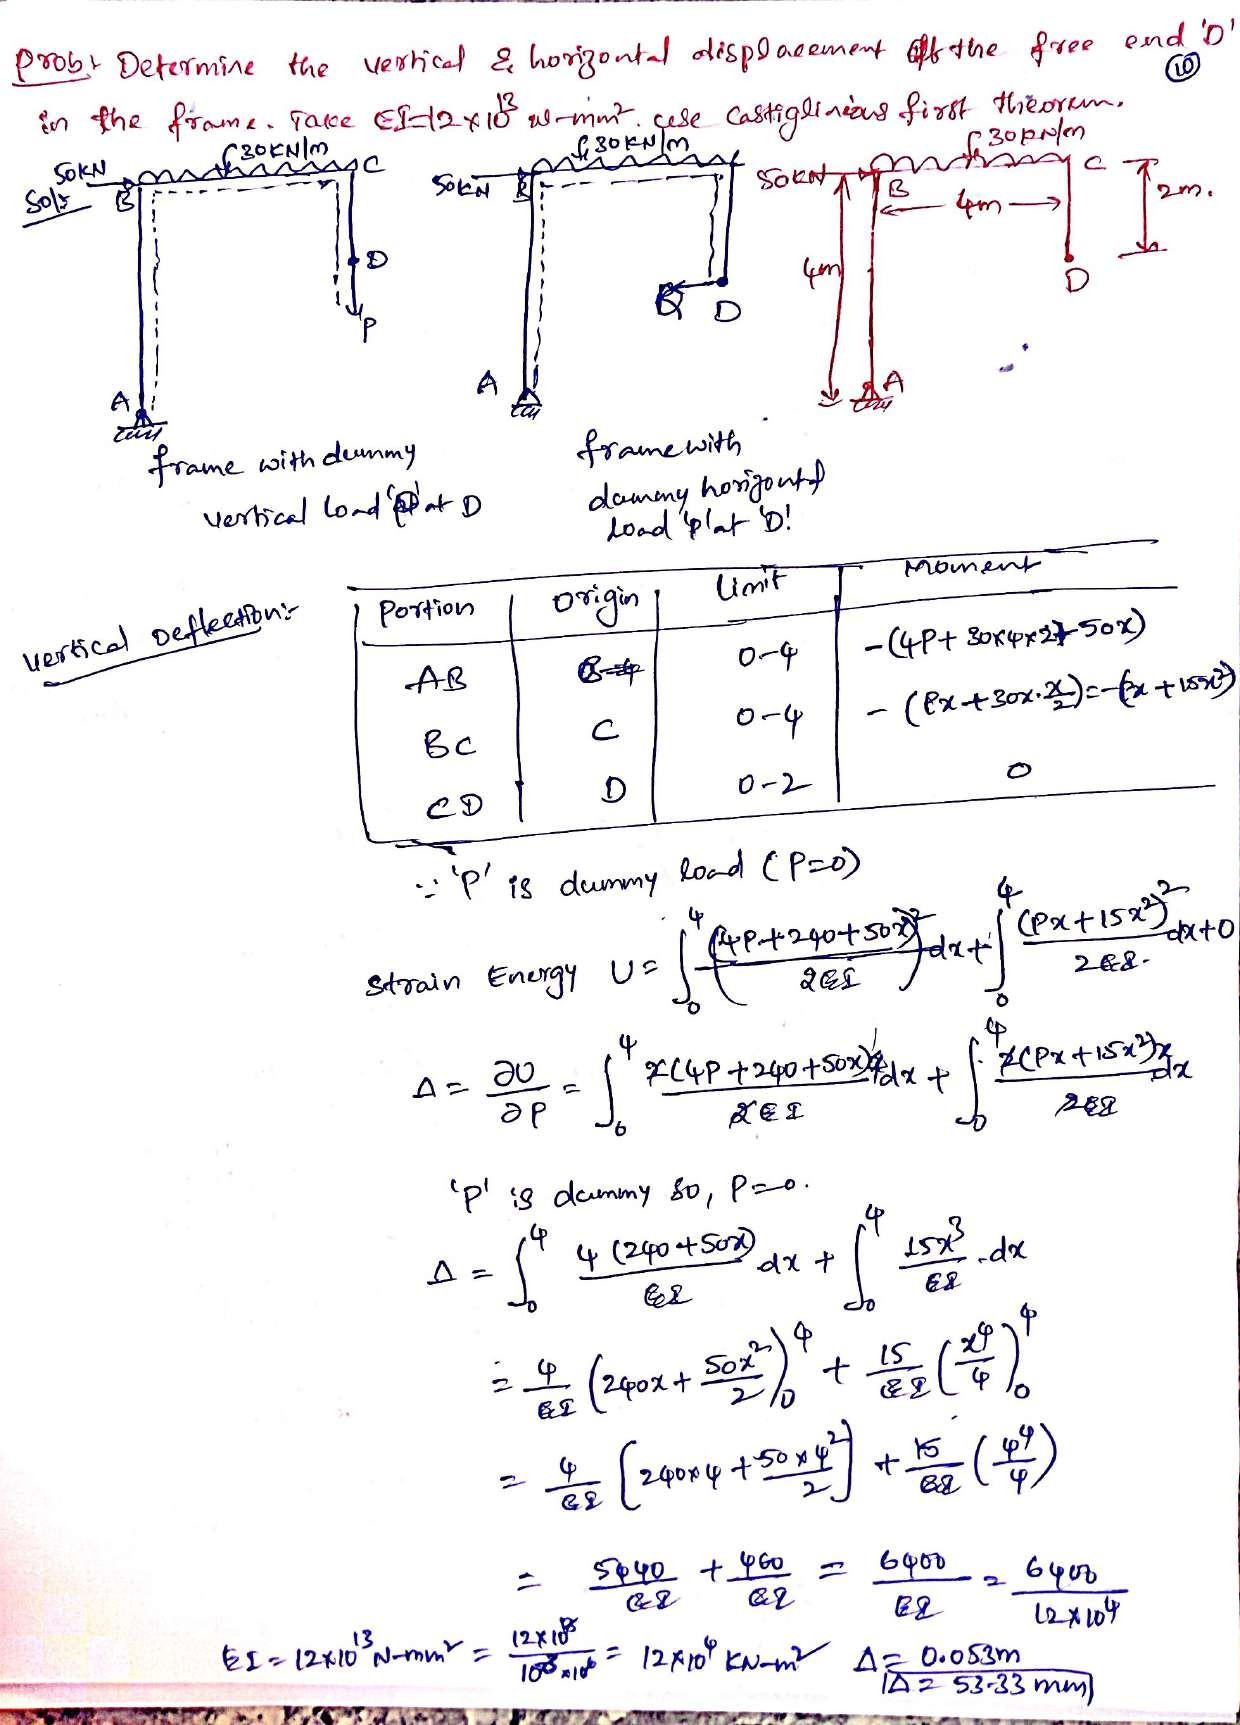 Prob:- Determine the vertical & horizontal displacement of the free end 'D'
in the frame. Take EI=12×10¹³ N-mm². use Castiglinious first theorem. (10)
Sol:-
50KN B 30KN/m C
D
P
A
50KN B 30KN/m
Q D
A
50KN B 30KN/m C
4m 2m.
4m
D
A
frame with dummy
vertical load 'P' at D
frame with
dummy horizontal
load 'P' at 'D'
Vertical Deflection:-
Portion Origin Limit Moment
AB B 0-4 -(4P+30×4×2+50x)
BC C 0-4 -(Px+30x.x/2)=-(Px+15x²)
CD D 0-2 0
∵ 'P' is dummy load (P=0)
Strain Energy U = ∫₀⁴ (4P+240+50x)²/2EI dx + ∫₀⁴ (Px+15x²)²/2EI dx+0
Δ = ∂U/∂P = ∫₀⁴ 2(4P+240+50x)4/2EI dx + ∫₀⁴ 2(Px+15x²)x/2EI dx
'P' is dummy so, P=0.
Δ = ∫₀⁴ 4(240+50x)/EI dx + ∫₀⁴ 15x³/EI .dx
= 4/EI (240x+50x²/2)₀⁴ + 15/EI (x⁴/4)₀⁴
= 4/EI [240×4+50×4²/2] + 15/EI (4⁴/4)
= 5440/EI + 960/EI = 6400/EI = 6400/12×10⁴
EI = 12×10¹³ N-mm² = 12×10¹³/10³×10⁶ = 12×10⁴ KN-m² Δ = 0.053m
Δ = 53.33 mm